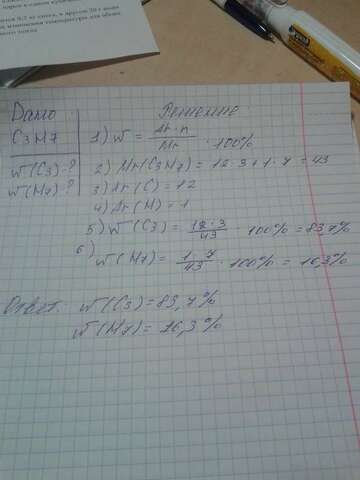 Дано
Решение
C3H7
1) W = Ar·n / Mr · 100%
W(C3)-?
2) Mr(C3H7) = 12·3+1·7 = 43
W(H7)-?
3) Ar(C) = 12
4) Ar(H) = 1
5) W(C3) = 12·3 / 43 · 100% = 83,7%
6) W(H7) = 1·7 / 43 · 100% = 16,3%
Ответ: W(C3) = 83,7%
W(H7) = 16,3%